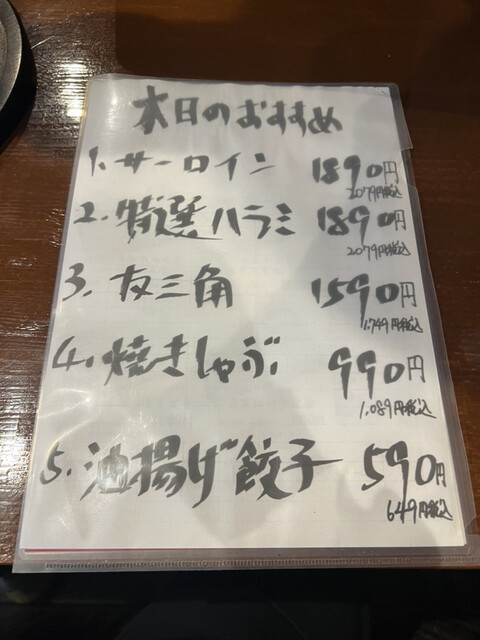 本日のおすすめ
1. サーロイン 1890円
2079円税込
2. 特選ハラミ 1890円
2079円税込
3. 友三角 1590円
1.749円税込
4. 焼きしゃぶ 990円
1.089円税込
5. 油揚げ餃子 590円
649円税込